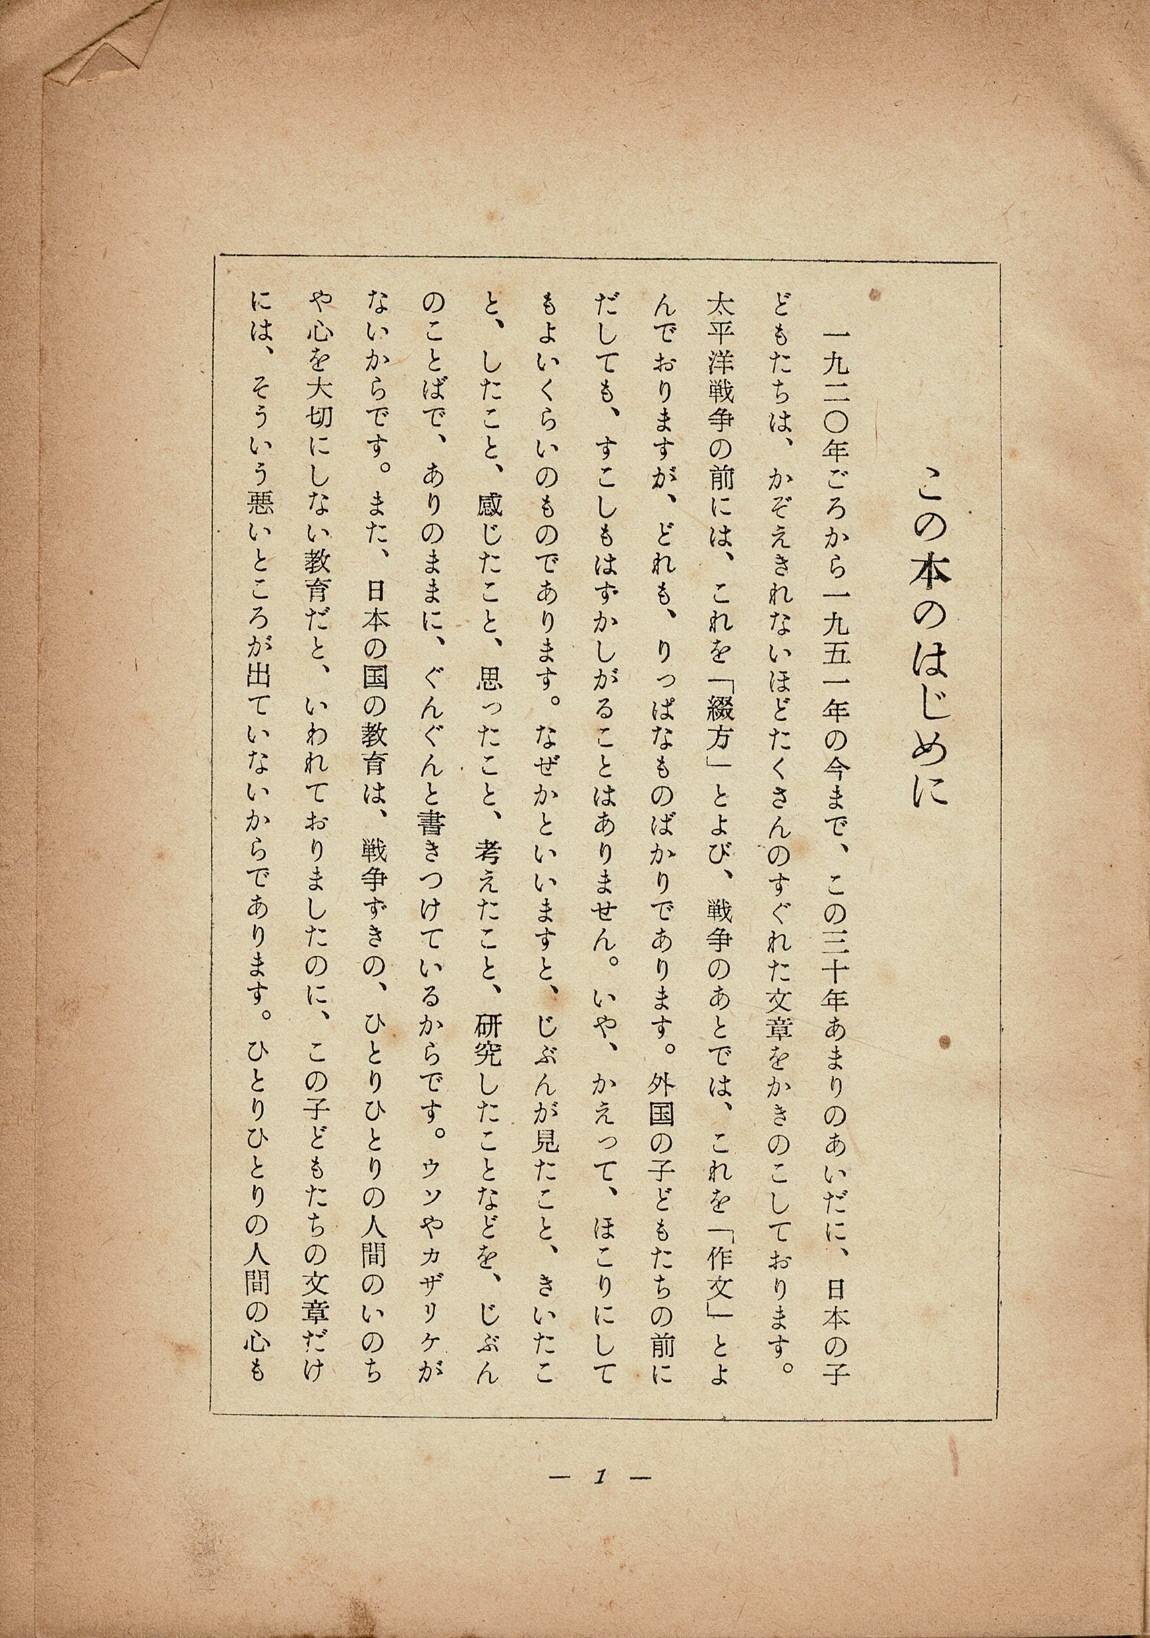 この本のはじめに
一九二〇年ごろから一九五一年の今まで、この三十年あまりのあいだに、日本の子
どもたちは、かぞえきれないほどたくさんのすぐれた文章をかきのこしております。
太平洋戦争の前には、これを「綴方」とよび、戦争のあとでは、これを「作文」とよ
んでおりますが、どれも、りっぱなものばかりであります。外国の子どもたちの前に
だしても、すこしもはずかしがることはありません。いや、かえって、ほこりにして
もよいくらいのものであります。なぜかといいますと、じぶんが見たこと、きいたこ
と、したこと、感じたこと、思ったこと、考えたこと、研究したことなどを、じぶん
のことばで、ありのままに、ぐんぐんと書きつけているからです。ウソやカザリケが
ないからです。また、日本の国の教育は、戦争ずきの、ひとりひとりの人間のいのち
や心を大切にしない教育だと、いわれておりましたのに、この子どもたちの文章だけ
には、そういう悪いところが出ていないからであります。ひとりひとりの人間の心も
— 1 —